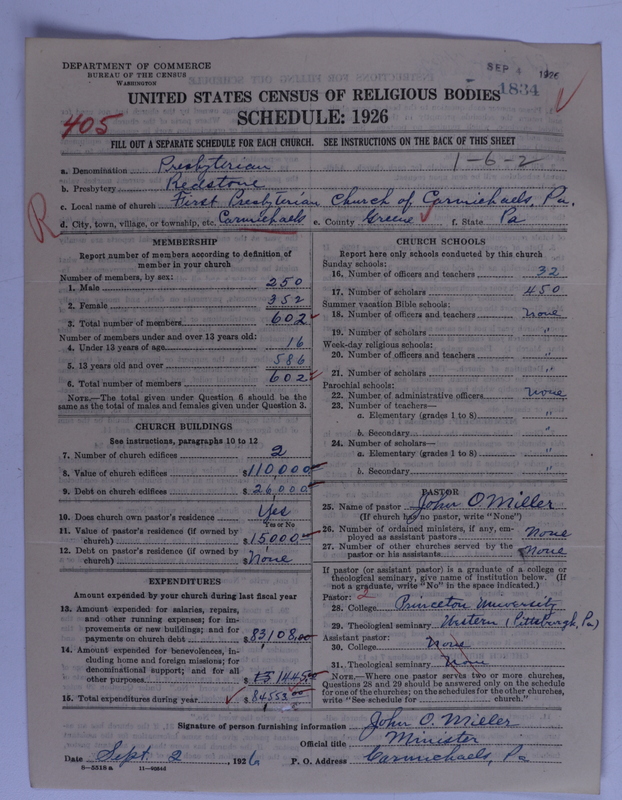 DEPARTMENT OF COMMERCE
BUREAU OF THE CENSUS
WASHINGTON
SEP 4 1926
1834
UNITED STATES CENSUS OF RELIGIOUS BODIES
SCHEDULE: 1926
405
FILL OUT A SEPARATE SCHEDULE FOR EACH CHURCH. SEE INSTRUCTIONS ON THE BACK OF THIS SHEET
1-6-2
a. Denomination Presbyterian
b. Presbytery Redstone
c. Local name of church First Presbyterian Church of Carmichaels, Pa.
R
d. City, town, village, or township, etc. Carmichaels e. County Greene f. State Pa
MEMBERSHIP
Report number of members according to definition of
member in your church
Number of members, by sex:
1. Male 250
2. Female 352
3. Total number of members 602
Number of members under and over 13 years old:
4. Under 13 years of age 16
5. 13 years old and over 586
6. Total number of members 602
NOTE.—The total given under Question 6 should be the
same as the total of males and females given under Question 3.
CHURCH BUILDINGS
See instructions, paragraphs 10 to 12
7. Number of church edifices 2
8. Value of church edifices $110,000
9. Debt on church edifices $26,000
10. Does church own pastor's residence Yes
Yes or No
11. Value of pastor's residence (if owned by
church) $15000
12. Debt on pastor's residence (if owned by
church) $None
EXPENDITURES
Amount expended by your church during last fiscal year
13. Amount expended for salaries, repairs,
and other running expenses; for im-
provements or new buildings; and for
payments on church debt $83108.00
14. Amount expended for benevolences, in-
cluding home and foreign missions; for
denominational support; and for all
other purposes $1445.00
15. Total expenditures during year $84553.00
CHURCH SCHOOLS
Report here only schools conducted by this church
Sunday schools:
16. Number of officers and teachers 32
17. Number of scholars 450
Summer vacation Bible schools:
18. Number of officers and teachers None
19. Number of scholars "
Week-day religious schools:
20. Number of officers and teachers "
21. Number of scholars "
Parochial schools:
22. Number of administrative officers None
23. Number of teachers—
a. Elementary (grades 1 to 8) "
b. Secondary "
24. Number of scholars—
a. Elementary (grades 1 to 8) "
b. Secondary "
PASTOR
25. Name of pastor John O Miller
(If church has no pastor, write "None")
26. Number of ordained ministers, if any, em-
ployed as assistant pastors None
27. Number of other churches served by the
pastor or his assistants None
If pastor (or assistant pastor) is a graduate of a college or
theological seminary, give name of institution below. (If
not a graduate, write "No" in the space indicated.)
Pastor: 2
28. College Princeton University
29. Theological seminary Western (Pittsburgh, Pa)
Assistant pastor:
30. College None
31. Theological seminary None
NOTE.—Where one pastor serves two or more churches,
Questions 28 and 29 should be answered only on the schedule
for one of the churches; on the schedules for the other churches,
write "See schedule for church."
Signature of person furnishing information John O. Miller
Official title Minister
Date Sept. 2, 1926 P. O. Address Carmichaels, Pa
8—5518a